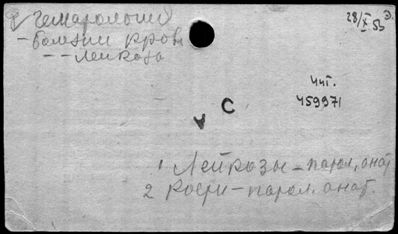 Гематологии
- болезни крови
-- лейкоза
28/X 53
чит.
459971
С
А
1 Лейкозы - патол. анат.
2 Кости - патол. анат.